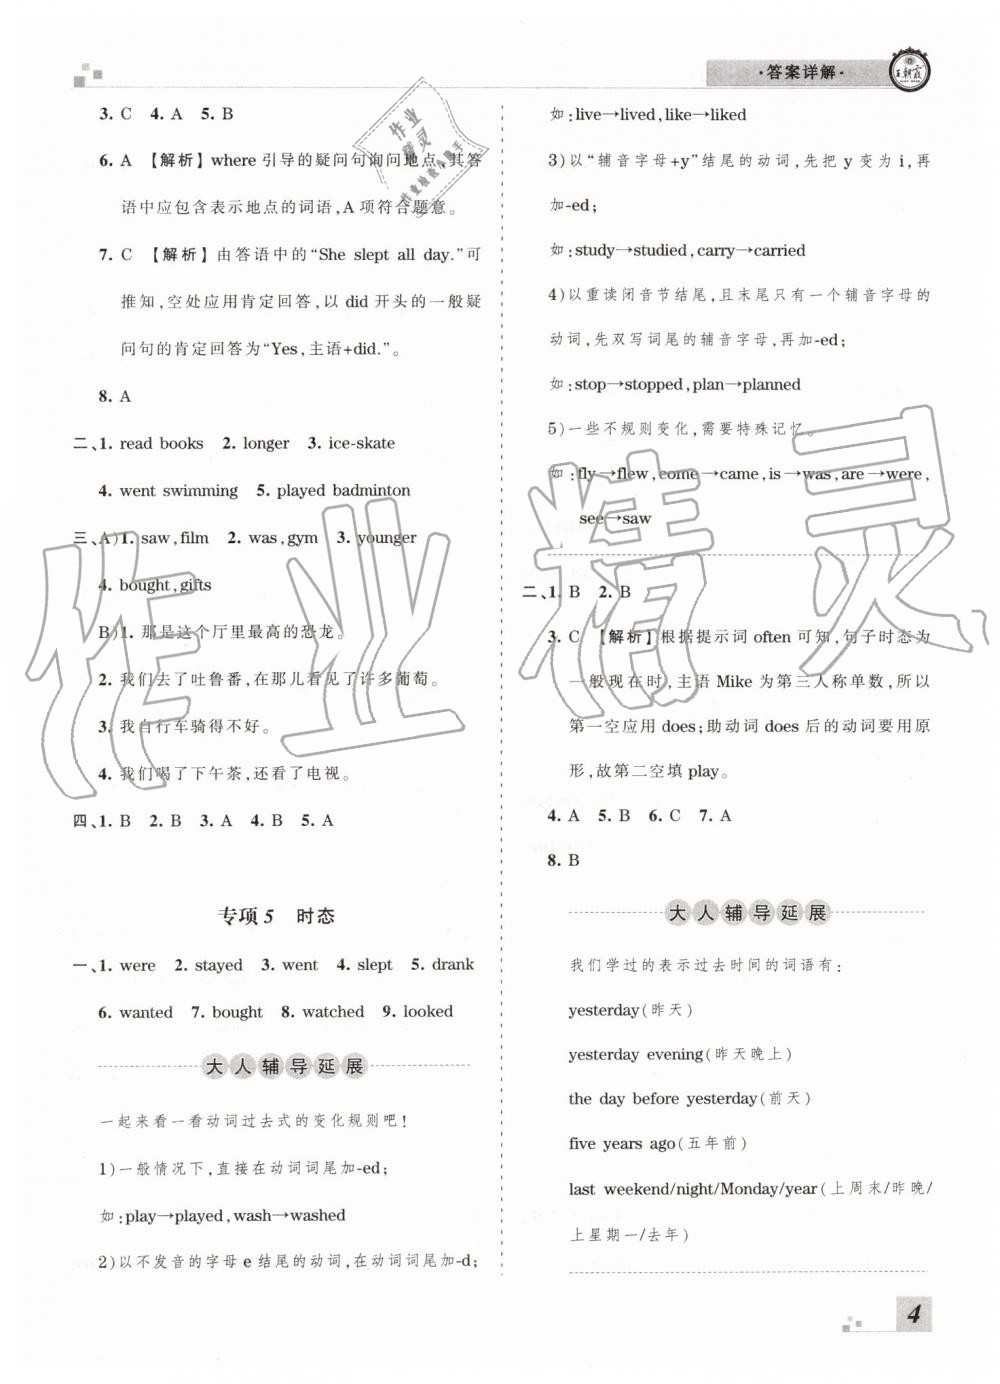 ·答案详解·
王朝霞
3. C  4. A  5. B
6. A 【解析】where 引导的疑问句询问地点,其答
语中应包含表示地点的词语,A 项符合题意。
7. C 【解析】由答语中的“She slept all day.”可
推知,空处应用肯定回答,以 did 开头的一般疑
问句的肯定回答为“Yes,主语+did.”。
8. A
二、1. read books  2. longer  3. ice-skate
4. went swimming  5. played badminton
三、A)1. saw,film  2. was,gym  3. younger
4. bought,gifts
B)1. 那是这个厅里最高的恐龙。
2. 我们去了吐鲁番,在那儿看见了许多葡萄。
3. 我自行车骑得不好。
4. 我们喝了下午茶,还看了电视。
四、1. B  2. B  3. A  4. B  5. A
专项 5  时态
一、1. were  2. stayed  3. went  4. slept  5. drank
6. wanted  7. bought  8. watched  9. looked
大人辅导延展
一起来看一看动词过去式的变化规则吧!
1)一般情况下,直接在动词词尾加-ed;
如:play→played,wash→washed
2)以不发音的字母 e 结尾的动词,在动词词尾加-d;
如:live→lived,like→liked
3)以“辅音字母+y”结尾的动词,先把 y 变为 i,再
加-ed;
如:study→studied,carry→carried
4)以重读闭音节结尾,且末尾只有一个辅音字母的
动词,先双写词尾的辅音字母,再加-ed;
如:stop→stopped,plan→planned
5)一些不规则变化,需要特殊记忆。
如:fly→flew,come→came,is→was,are→were,
see→saw
二、1. B  2. B
3. C 【解析】根据提示词 often 可知,句子时态为
一般现在时,主语 Mike 为第三人称单数,所以
第一空应用 does;助动词 does 后的动词要用原
形,故第二空填 play。
4. A  5. B  6. C  7. A
8. B
大人辅导延展
我们学过的表示过去时间的词语有:
yesterday(昨天)
yesterday evening(昨天晚上)
the day before yesterday(前天)
five years ago(五年前)
last weekend/night/Monday/year(上周末/昨晚/
上星期一/去年)
4
作业精灵
作业精灵